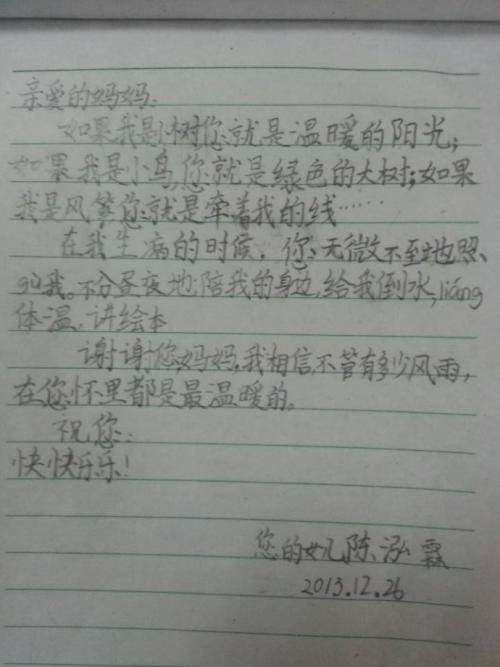 亲爱的妈妈：
如果我是小树您就是温暖的阳光；
如果我是小鸟,您就是绿色的大树；如果
我是风筝您就是牵着我的线……
在我生病的时候，您无微不至地照、
gù我。不分昼夜地陪我的身边,给我倒水,liáng
体温、讲绘本
谢谢您,妈妈,我相信,不管有多少风雨，
在您怀里都是最温暖的。
祝您：
快快乐乐！
您的女儿陈泓霖
2013.12.26